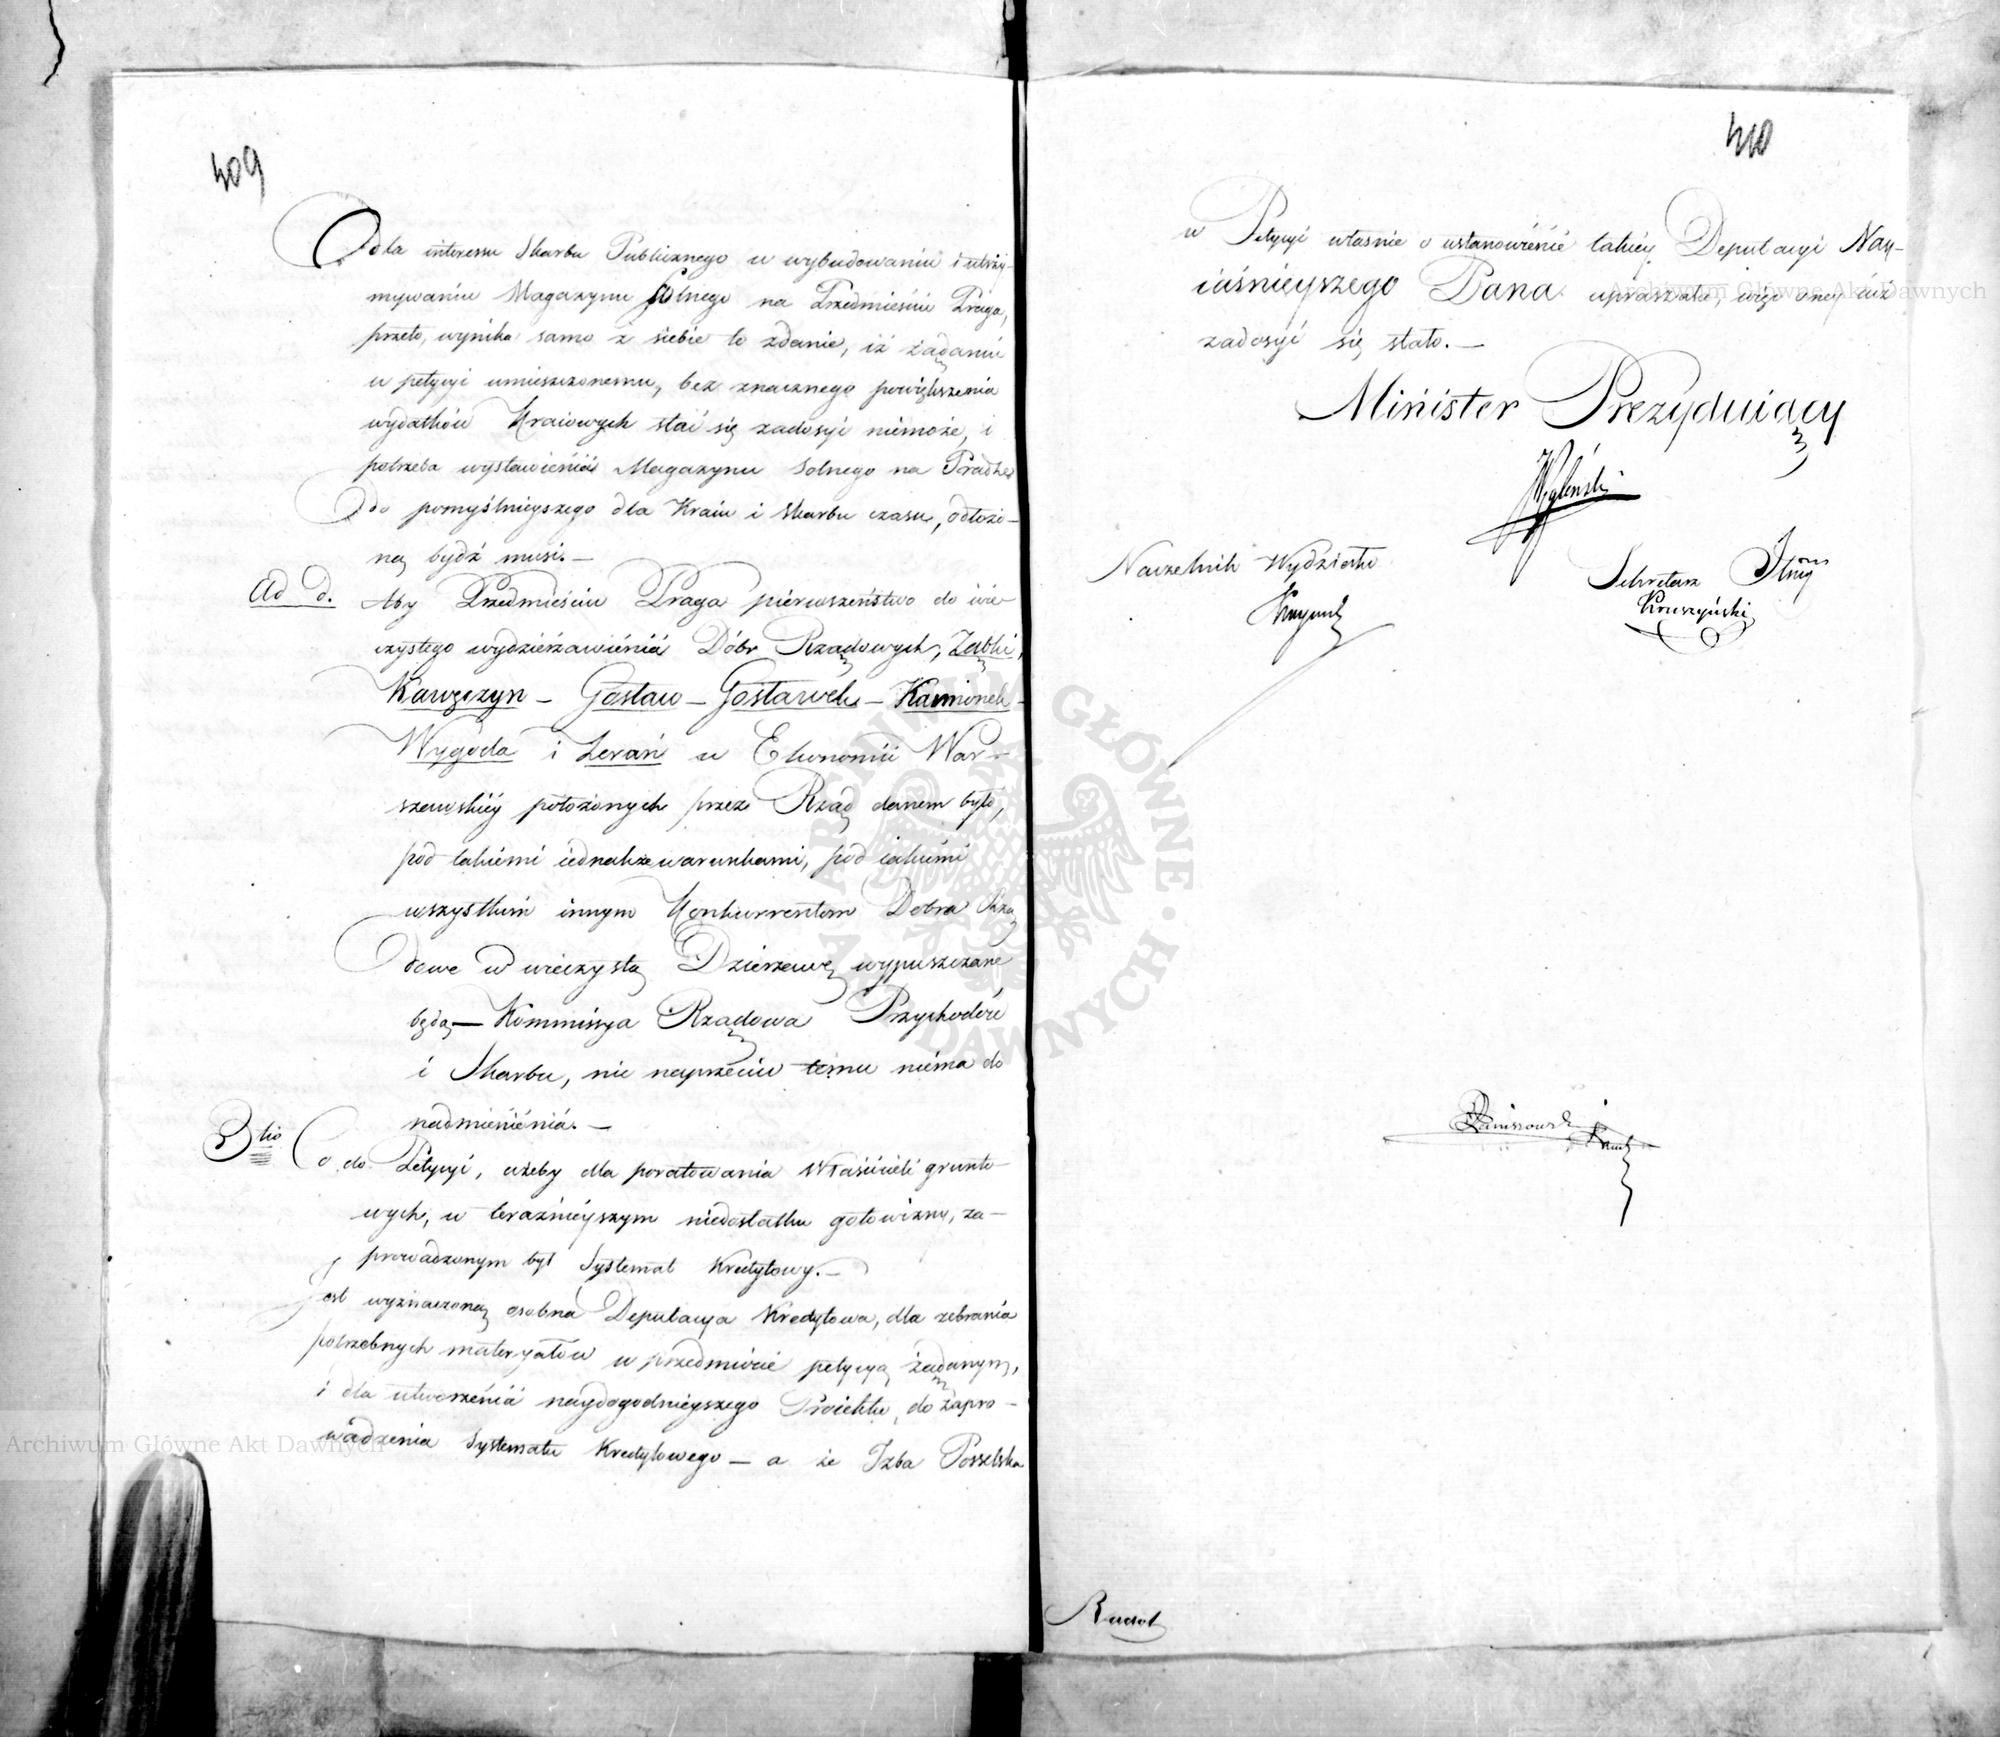 409
dla interesu Skarbu Publicznego w wybudowaniu i utrzy-
mywaniu Magazynu Solnego na Przedmieściu Praga,
przeto, wynika samo z siebie to zdanie, iż żądaniu
w petycyi umieszczonemu, bez znacznego powiększenia
wydatków Kraiowych stać się zadosyć niemoże, i
potrzeba wystawieniá Magazynu Solnego na Pradze
do pomyślnieyszego dla Kraiu i Skarbu czasu, odłożo-
ną bydź musi. —
Ad d. Aby Przedmieściu Praga pierwszeństwo do wie-
czystego wydzierżawieniá Dóbr Rządowych, Ząbki,
Kawęczyn – Gosław – Gosławek – Kamionek –
Wygoda i Zerań w Ekonomii War-
szawskiéy położonych przez Rząd danem było,
pod takiemi iednakże warunkami, pod iakiemi
wszystkim innym Konkurrentom Dobra Rzą
dowe w wieczystą Dzierżawę wypuszczane
będą — Kommissya Rządowa Przychodów
i Skarbu, nic naprzeciw temu niéma do
nadmieniéniá. —
3tio Co do Petycyi, ażeby dla poratowania Właścicieli grunto-
wych, w teraźnieyszym niedostatku gotowizny, za-
prowadzonym był Systemat Kredytowy. —
Jest wyznaczoną osobna Deputacya Kredytowa, dla zebrania
potrzebnych materyałów w przedmiocie petycyą żądanym,
i dla utworzéniá naydogodnieyszego Proiektu, do zapro-
wadzenia Systematu Kredytowego — a że Izba Poselska
410
w Petycyi właśnie o ustanowiénié takiéy Deputacyi Nay-
iaśnieyszego Pana upraszała, więc oney iuż
zadosyć się stało. —
Minister Prezyduiący
Naczelnik Wydziału
Sekretarz Jlny
Kruszyński
Archiwum Główne Akt Dawnych
Archiwum Główne Akt Dawnych
ARCHIWUM GŁÓWNE AKT DAWNYCH